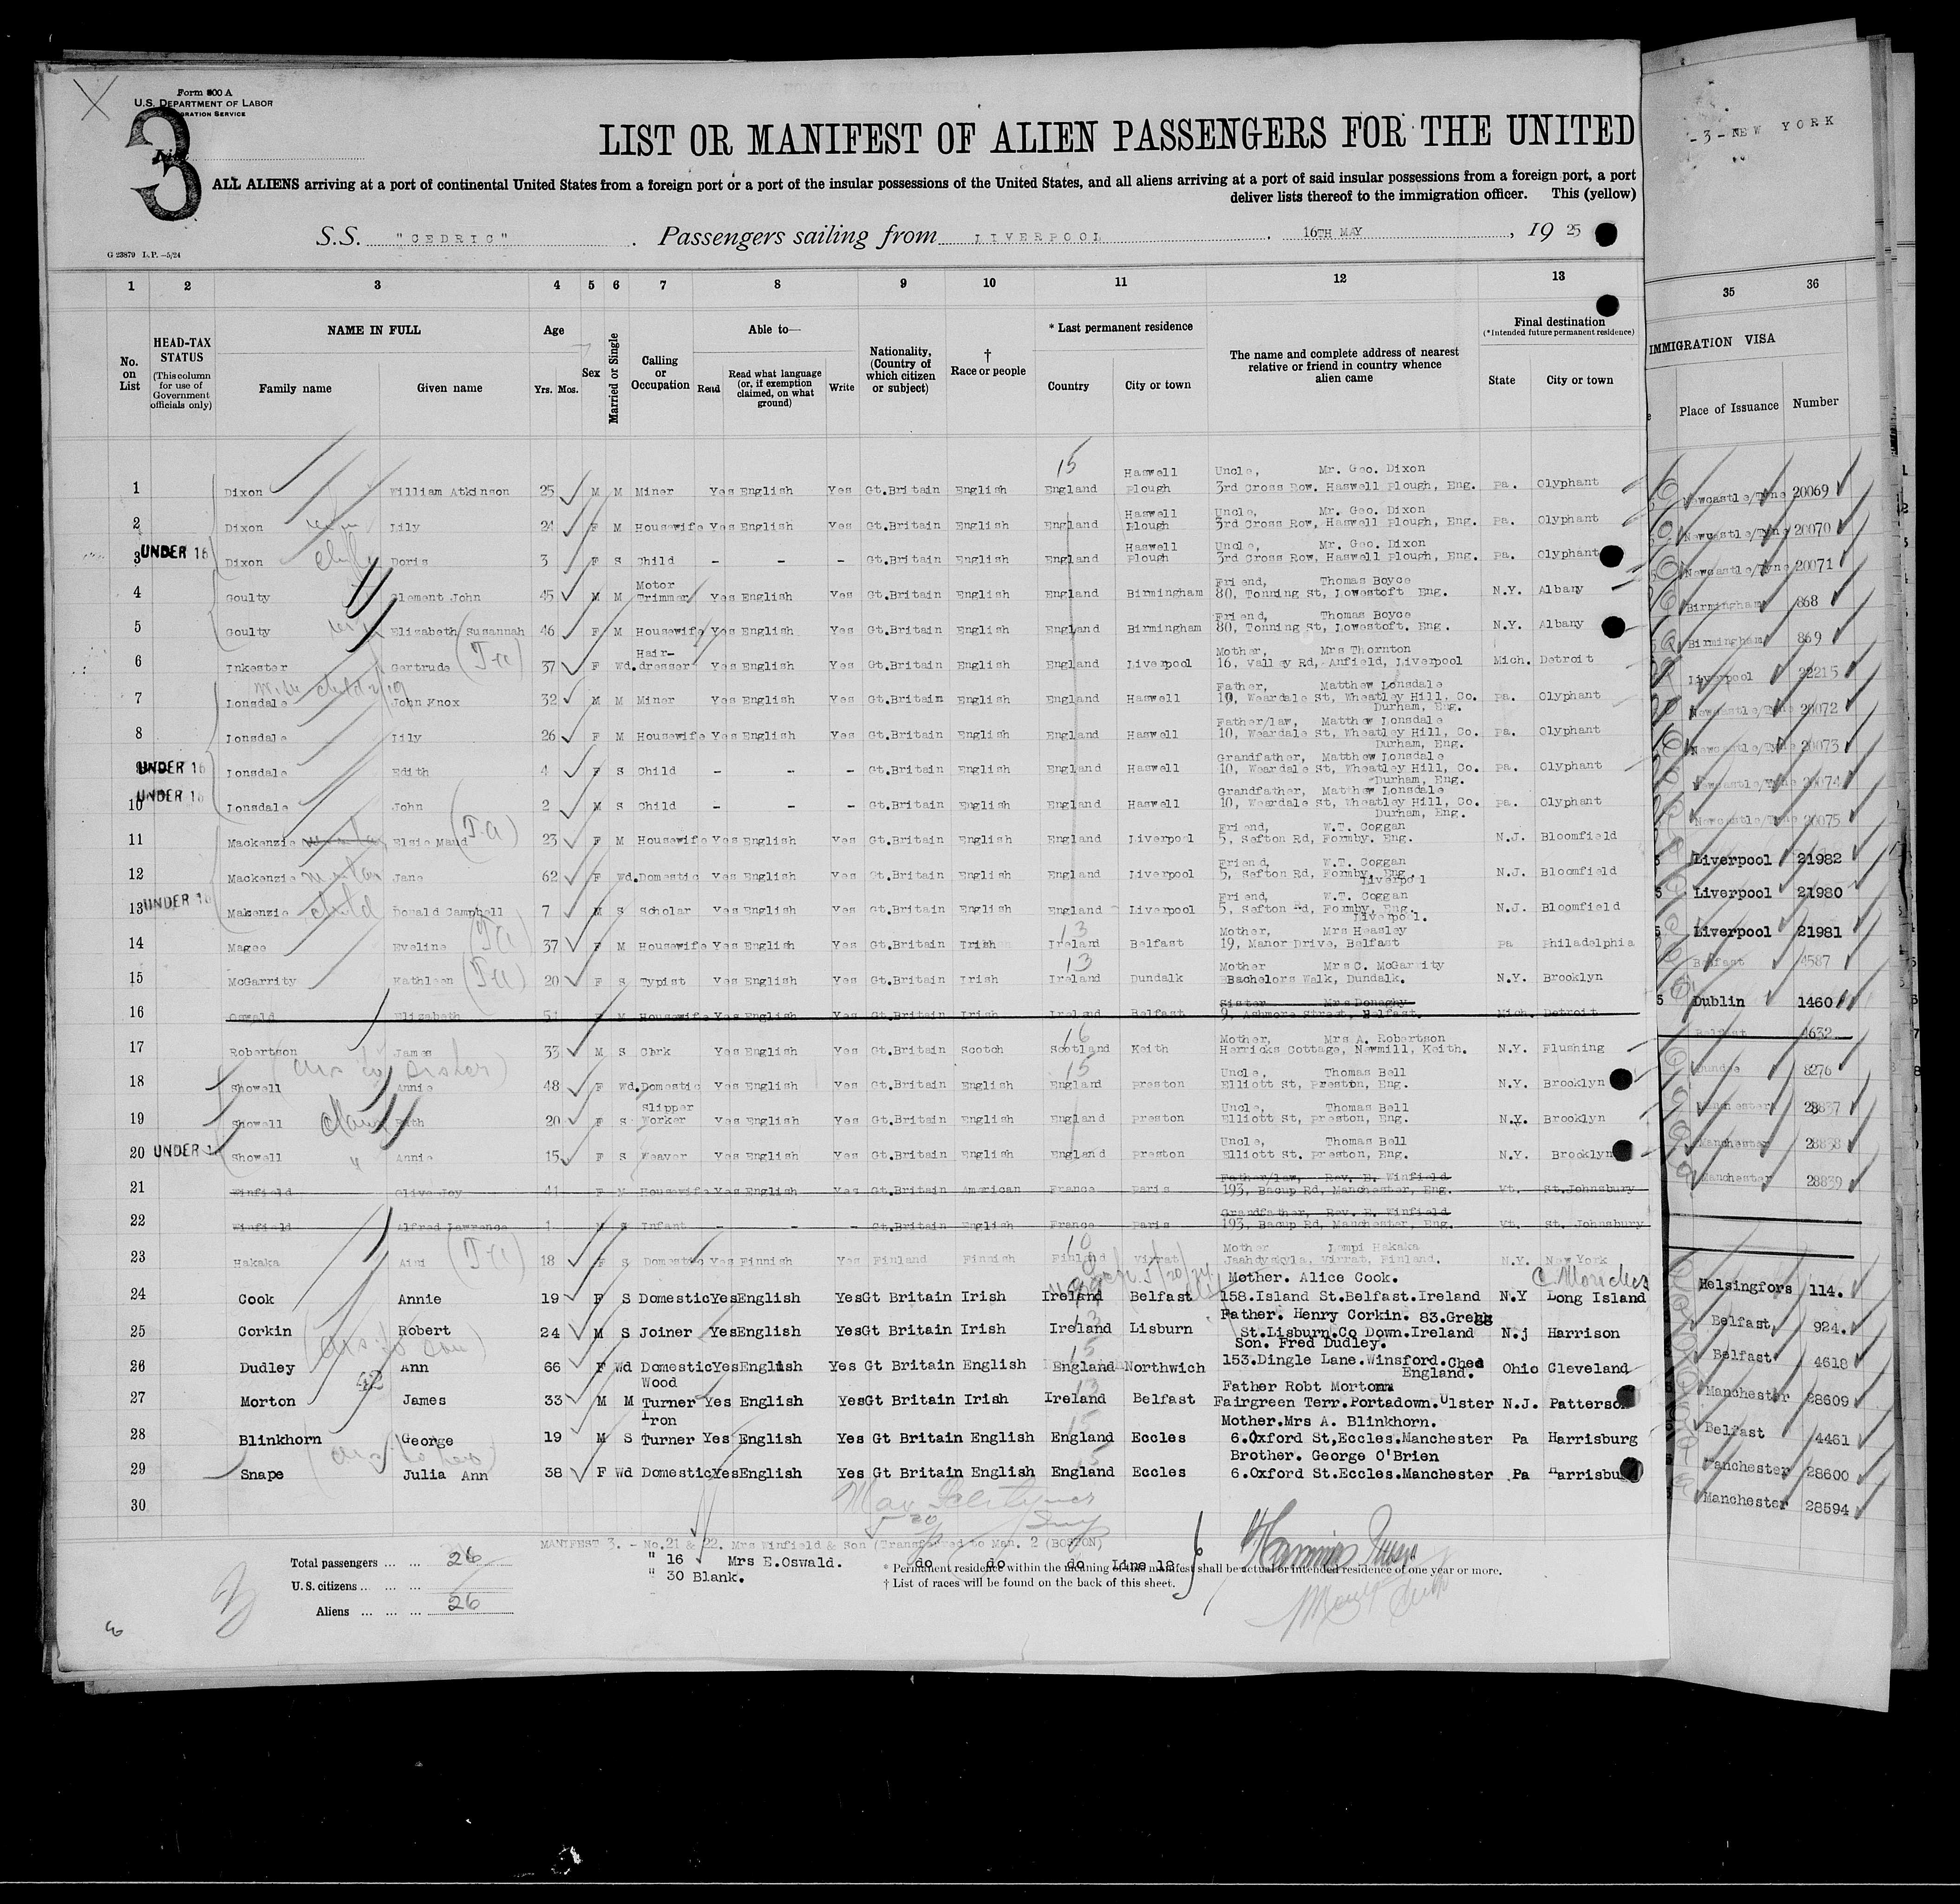 Form 500 A
U.S. DEPARTMENT OF LABOR
IMMIGRATION SERVICE
3
LIST OR MANIFEST OF ALIEN PASSENGERS FOR THE UNITED
ALL ALIENS arriving at a port of continental United States from a foreign port or a port of the insular possessions of the United States, and all aliens arriving at a port of said insular possessions from a foreign port, a port
deliver lists thereof to the immigration officer. This (yellow)
S.S. "CEDRIC" . Passengers sailing from LIVERPOOL . 16TH MAY , 19 25
G 23879 L.P.—5/24
-3-NEW YORK
1 2 3 4 5 6 7 8 9 10 11 12 13 35 36
No. on List
HEAD-TAX STATUS (This column for use of Government officials only)
NAME IN FULL Family name Given name
Age Yrs. Mos.
Sex
Married or Single
Calling or Occupation
Able to— Read Read what language (or, if exemption claimed, on what ground) Write
Nationality, (Country of which citizen or subject)
† Race or people
* Last permanent residence Country City or town
The name and complete address of nearest relative or friend in country whence alien came
Final destination (*Intended future permanent residence) State City or town
IMMIGRATION VISA Place of Issuance Number
15 Haswell Uncle, Mr. Geo. Dixon
1 Dixon William Atkinson 25 M M Miner Yes English Yes Gt.Britain English England Plough 3rd Cross Row. Haswell Plough, Eng. Pa. Olyphant Newcastle/Tyne 20069
Haswell Uncle, Mr. Geo. Dixon
2 Dixon Lily 24 F M Housewife Yes English Yes Gt.Britain English England Plough 3rd Cross Row, Haswell Plough, Eng. Pa. Olyphant Newcastle/Tyne 20070
Haswell Uncle, Mr. Geo. Dixon
UNDER 16 3 Dixon child Doris 3 F S Child - - - Gt.Britain English England Plough 3rd Cross Row, Haswell Plough, Eng. Pa. Olyphant Newcastle/Tyne 20071
Motor Friend, Thomas Boyce
4 Goulty Clement John 45 M M Trimmer Yes English Yes Gt.Britain English England Birmingham 80, Tonning St, Lowestoft Eng. N.Y. Albany Birmingham 868
Friend, Thomas Boyce
5 Goulty Elizabeth Susannah 46 F M Housewife Yes English Yes Gt.Britain English England Birmingham 80, Tonning St, Lowestoft. Eng. N.Y. Albany Birmingham 869
Hair- Mother, Mrs Thornton
6 Inkester Gertrude 37 F Wd. dresser Yes English Yes Gt.Britain English England Liverpool 16, Valley Rd, Anfield, Liverpool Mich. Detroit Liverpool 22215
Father, Matthew Lonsdale
7 Lonsdale John Knox 32 M M Miner Yes English Yes Gt.Britain English England Haswell 10, Weardale St, Wheatley Hill, Co. Pa. Olyphant Newcastle/Tyne 20072
Durham, Eng.
Father/law, Matthew Lonsdale
8 Lonsdale Lily 26 F M Housewife Yes English Yes Gt.Britain English England Haswell 10, Weardale St, Wheatley Hill, Co. Pa. Olyphant Newcastle/Tyne 20073
Durham, Eng.
Grandfather, Matthew Lonsdale
UNDER 16 Lonsdale Edith 4 F S Child - - - Gt.Britain English England Haswell 10, Weardale St, Wheatley Hill, Co. Pa. Olyphant Newcastle/Tyne 20074
Durham, Eng.
UNDER 16 Grandfather, Matthew Lonsdale
10 Lonsdale John 2 M S Child - - - Gt.Britain English England Haswell 10, Weardale St, Wheatley Hill, Co. Pa. Olyphant Newcastle/Tyne 20075
Durham, Eng.
Friend, W.T. Coggan
11 Mackenzie Elsie Maud 23 F M Housewife Yes English Yes Gt.Britain English England Liverpool 5, Sefton Rd, Formby. Eng. N.J. Bloomfield Liverpool 21982
Friend, W.T. Coggan
12 Mackenzie Jane 62 F Wd. Domestic Yes English Yes Gt.Britain English England Liverpool 5, Sefton Rd, Formby, Eng. N.J. Bloomfield Liverpool 21980
Liverpool
Friend, W.T. Coggan
UNDER 16 13 Makenzie child Donald Campbell 7 M S Scholar Yes English Yes Gt.Britain English England Liverpool 5, Sefton Rd, Formby, Eng. N.J. Bloomfield Liverpool 21981
Liverpool.
13 Mother, Mrs Heasley
14 Magee Eveline 37 F M Housewife Yes English Yes Gt.Britain Irish Ireland Belfast 19, Manor Drive, Belfast Pa Philadelphia Belfast 4587
13 Mother Mrs C. McGarrity
15 McGarrity Kathleen 20 F S Typist Yes English Yes Gt.Britain Irish Ireland Dundalk Bachelors Walk, Dundalk. N.Y. Brooklyn Dublin 1460
Sister Mrs Donaghy
16 Oswald Elizabeth 51 F M Housewife Yes English Yes Gt.Britain Irish Ireland Belfast 9, Ashmore Street, Belfast. Mich. Detroit Belfast 4632
16 Mother, Mrs A. Robertson
17 Robertson James 33 M S Clerk Yes English Yes Gt.Britain Scotch Scotland Keith Herricks Cottage, Newmill, Keith. N.Y. Flushing Dundee 8276
15 Uncle, Thomas Bell
18 Showell Annie 48 F Wd. Domestic Yes English Yes Gt.Britain English England Preston Elliott St, Preston, Eng. N.Y. Brooklyn Manchester 28837
Slipper Uncle, Thomas Bell
19 Showell Ruth 20 F S Worker Yes English Yes Gt.Britain English England Preston Elliott St, Preston, Eng. N.Y. Brooklyn Manchester 28838
Uncle, Thomas Bell
20 UNDER 1 Showell Annie 15 F S Weaver Yes English Yes Gt.Britain English England Preston Elliott St. Preston, Eng. N.Y. Brooklyn Manchester 28839
Father/law, Rev. E. Winfield
21 Winfield Olive Joy 41 F M Housewife Yes English Yes Gt.Britain American France Paris 193, Bacup Rd, Manchester, Eng. Vt. St.Johnsbury
Grandfather, Rev. E. Winfield
22 Winfield Alfred Lawrence 1 M S Infant - - - Gt.Britain English France Paris 193, Bacup Rd, Manchester, Eng. Vt. St. Johnsbury
Mother Lempi Hakaka
23 Hakaka Aini 18 F S Domestic Yes Finnish Yes Finland Finnish Finland Virrat Jaahdyskyla, Virrat, Finland. N.Y. New York Helsingfors 114.
Mother. Alice Cook. C. Moriches
24 Cook Annie 19 F S Domestic Yes English Yes Gt Britain Irish Ireland Belfast 158.Island St.Belfast.Ireland N.Y Long Island Belfast 924.
Father. Henry Corkin. 83.Gregg
25 Corkin Robert 24 M S Joiner Yes English Yes Gt Britain Irish Ireland Lisburn St.Lisburn.Co Down.Ireland N.j Harrison Belfast 4618
Son. Fred Dudley.
26 Dudley Ann 66 F Wd Domestic Yes English Yes Gt Britain English England Northwich 153.Dingle Lane.Winsford.Ches Ohio Cleveland Manchester 28609
England.
Wood Father Robt Morton
27 Morton James 33 M M Turner Yes English Yes Gt Britain Irish Ireland Belfast Fairgreen Terr.Portadown.Ulster N.J. Patterson Belfast 4461
Iron Mother.Mrs A. Blinkhorn.
28 Blinkhorn George 19 M S Turner Yes English Yes Gt Britain English England Eccles 6.Oxford St,Eccles.Manchester Pa Harrisburg Manchester 28600
Brother. George O'Brien
29 Snape Julia Ann 38 F Wd Domestic Yes English Yes Gt Britain English England Eccles 6.Oxford St.Eccles.Manchester Pa Harrisburg Manchester 28594
30
MANIFEST 3. - No.21 & 22. Mrs Winfield & Son (Transferred to Man. 2 (BOSTON)
" 16 Mrs E.Oswald. do do do Line 18
" 30 Blank.
Total passengers ... ... 26
U.S. citizens ... ... ...
Aliens ... ... ... 26
* Permanent residence within the meaning of this manifest shall be actual or intended residence of one year or more.
† List of races will be found on the back of this sheet.